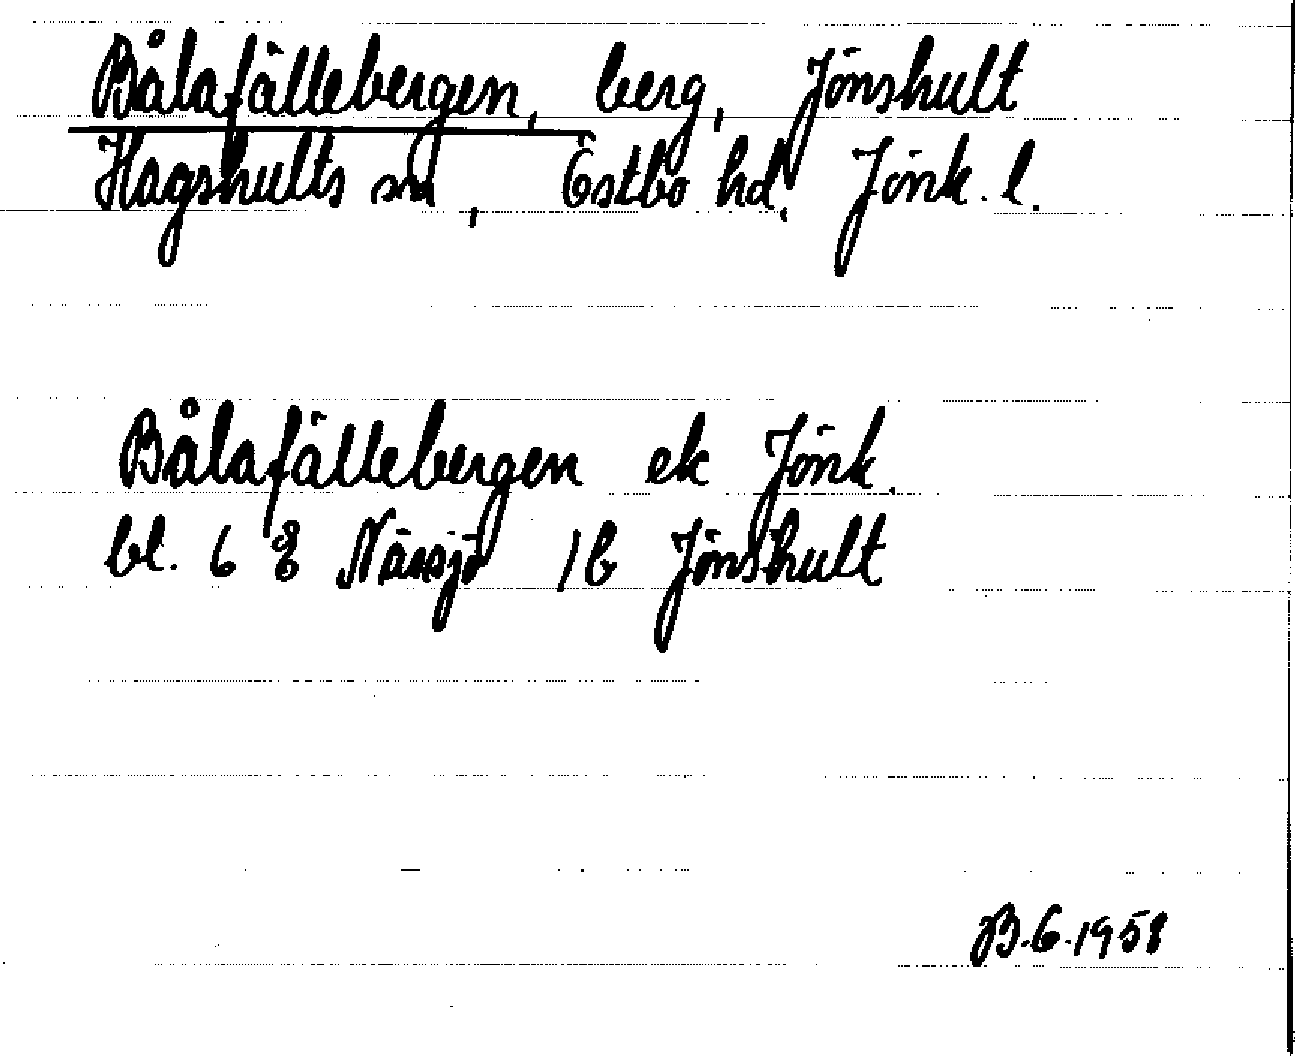 Bålafällebergen, berg, Jönshult
Hagshults sn, Östbo hd, Jönk. l.
Bålafällebergen ek Jönk.
bl. 6 8 Nässjö 1b Jönshult
B.G.1958